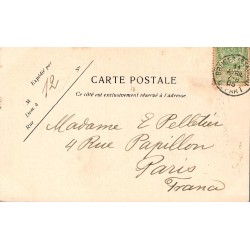 Expédié par
M
Dem. à
Rue
No
12
CARTE POSTALE
Ce côté est exclusivement réservé à l'adresse.
Madame E Pelletier
4 Rue Papillon
Paris
France